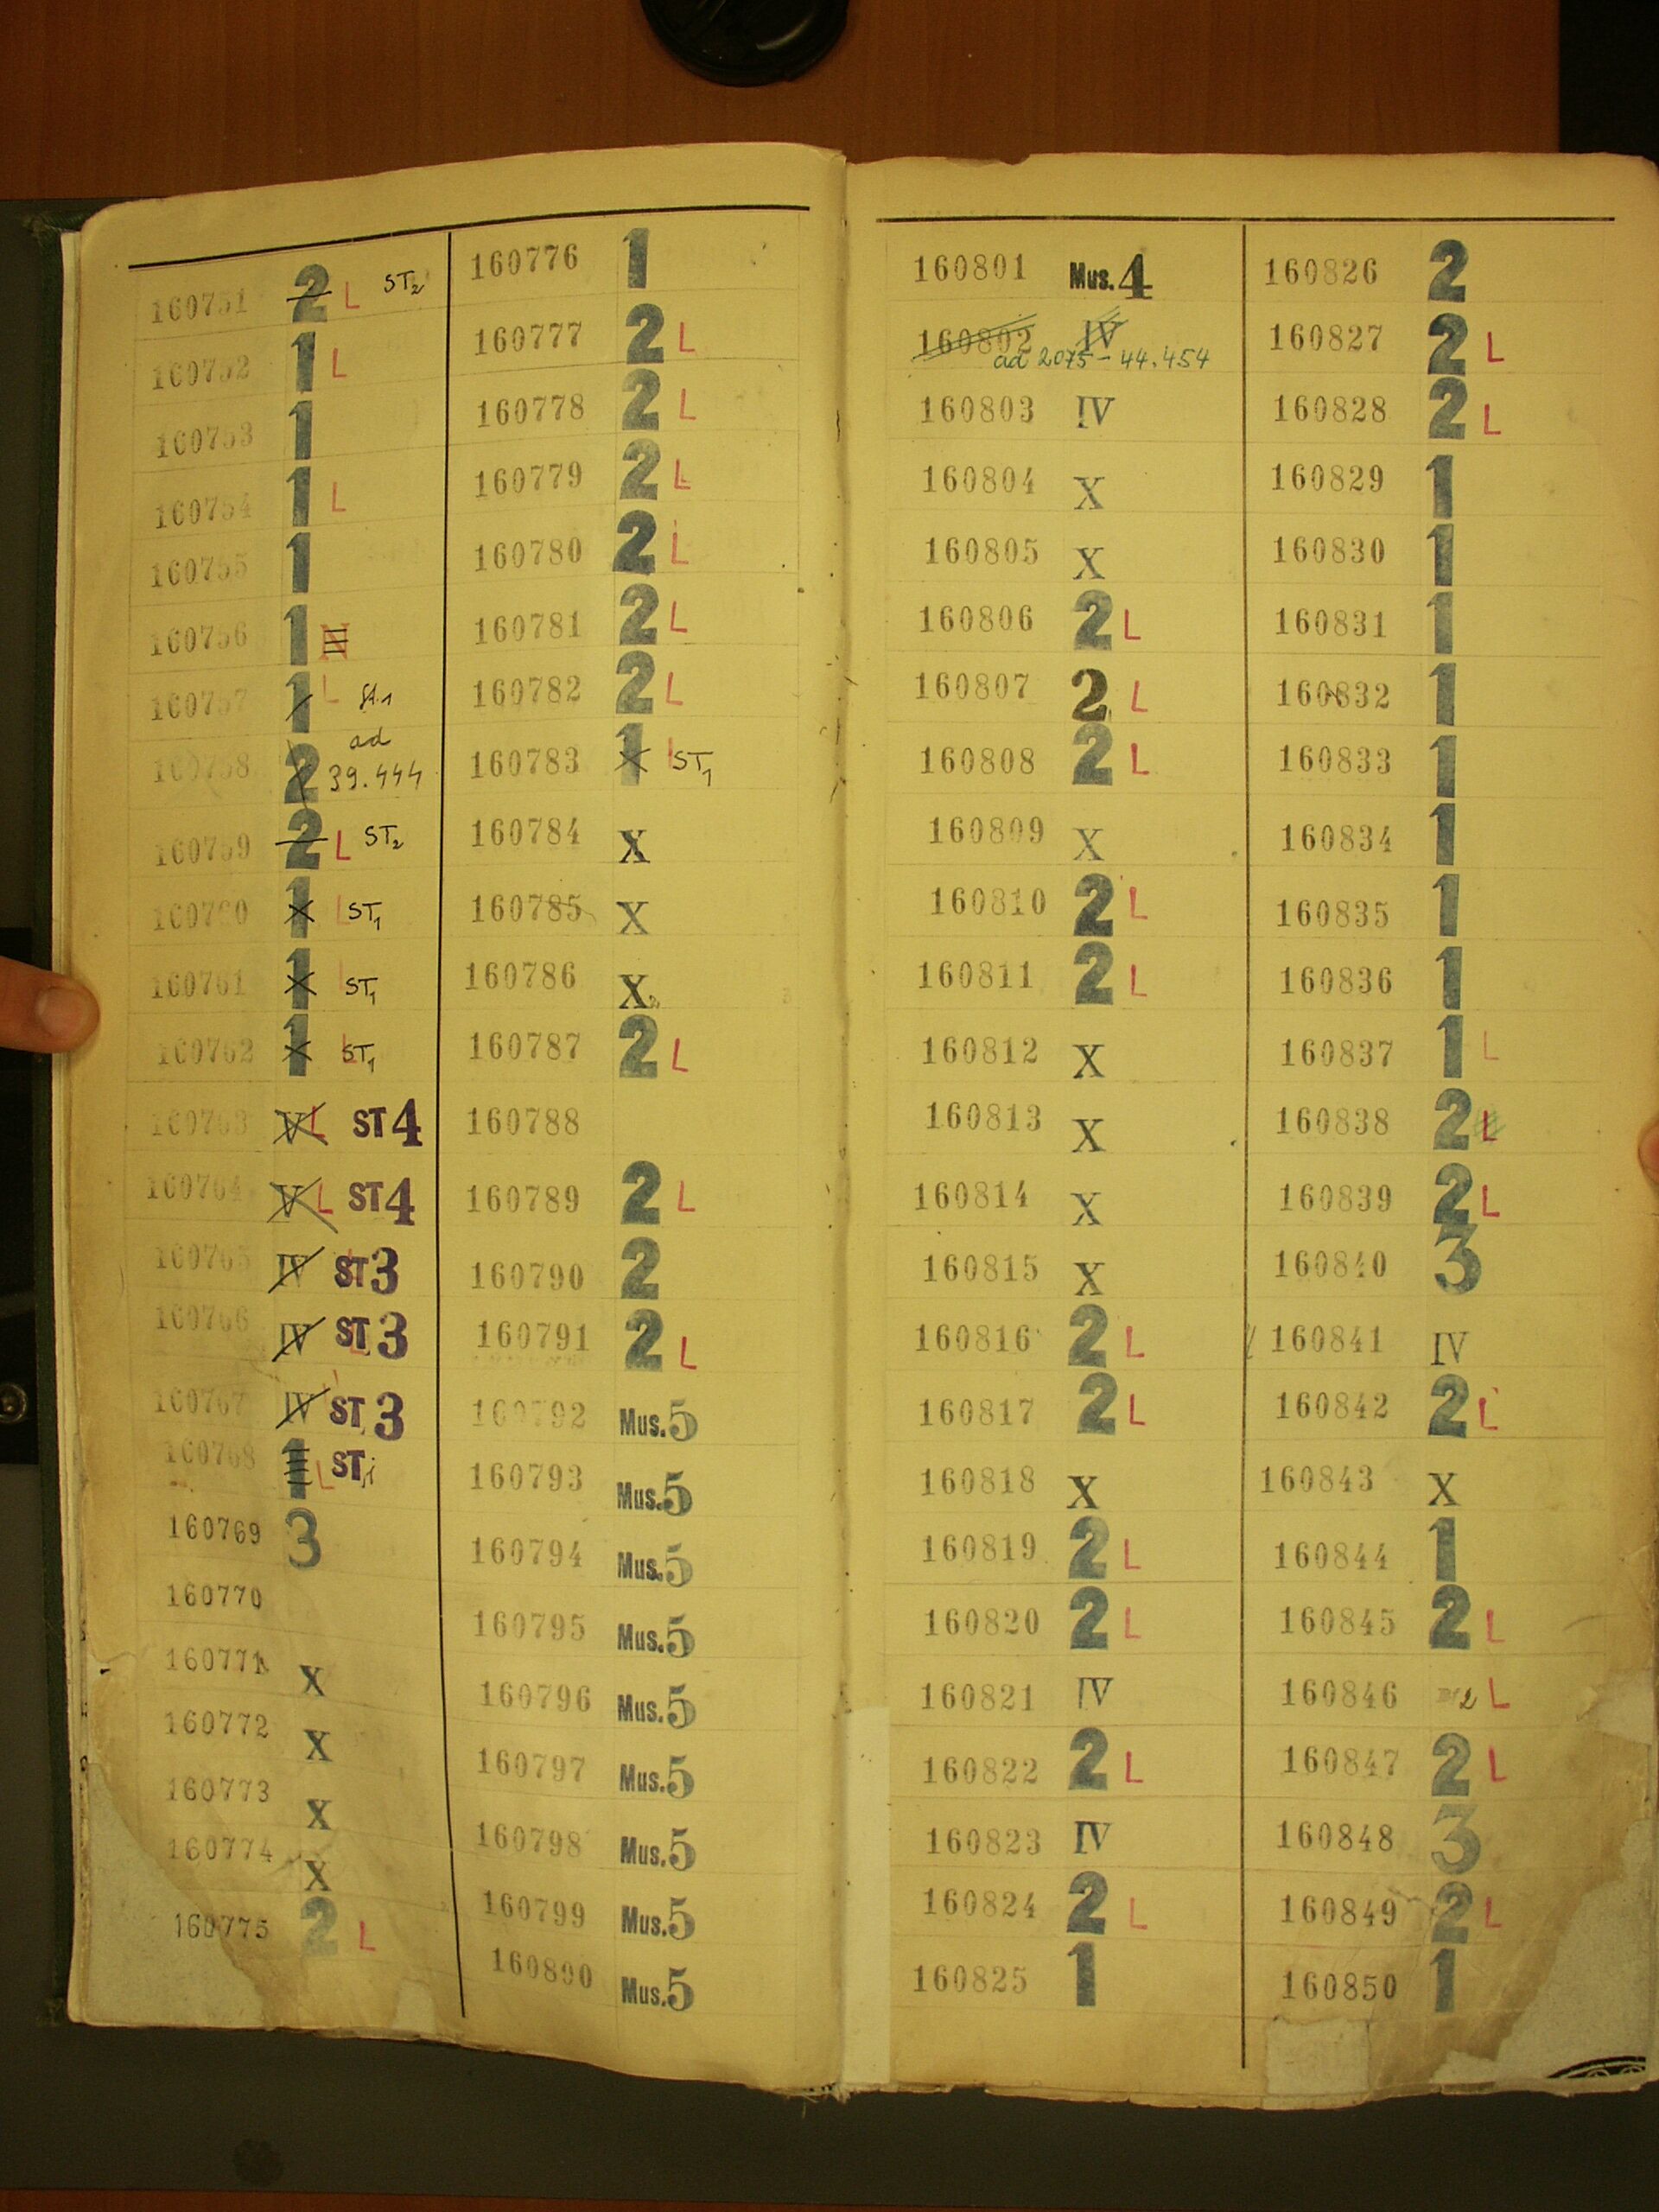 160751 2 L ST2
160752 1 L
160753 1
160754 1 L
160755 1
160756 1 N
160757 1 L St.1
160758 2 ad 39.444
160759 2 L ST2
160760 1 L ST1
160761 1 L ST1
160762 1 L ST1
160763 V L ST 4
160764 V L ST 4
160765 IV L ST 3
160766 IV L ST 3
160767 IV ST 3
160768 1 L ST
160769 3
160770
160771 X
160772 X
160773 X
160774 X
160775 2 L
160776 1
160777 2 L
160778 2 L
160779 2 L
160780 2 L
160781 2 L
160782 2 L
160783 1 L ST1
160784 X
160785 X
160786 X
160787 2 L
160788
160789 2 L
160790 2
160791 2 L
160792 Mus. 5
160793 Mus. 5
160794 Mus. 5
160795 Mus. 5
160796 Mus. 5
160797 Mus. 5
160798 Mus. 5
160799 Mus. 5
160800 Mus. 5
160801 Mus. 4
160802 IV
ad 2075-44.454
160803 IV
160804 X
160805 X
160806 2 L
160807 2 L
160808 2 L
160809 X
160810 2 L
160811 2 L
160812 X
160813 X
160814 X
160815 X
160816 2 L
160817 2 L
160818 X
160819 2 L
160820 2 L
160821 IV
160822 2 L
160823 IV
160824 2 L
160825 1
160826 2
160827 2 L
160828 2 L
160829 1
160830 1
160831 1
160832 1
160833 1
160834 1
160835 1
160836 1
160837 1 L
160838 2 L
160839 2 L
160840 3
160841 IV
160842 2 L
160843 X
160844 1
160845 2 L
160846 2 L
160847 2 L
160848 3
160849 2 L
160850 1